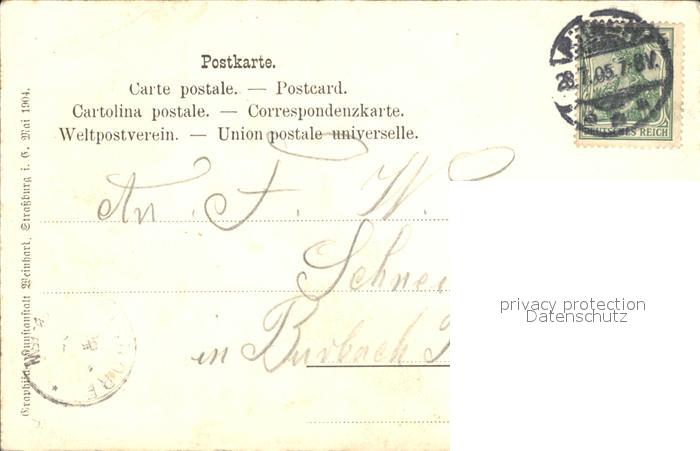 Postkarte.
Carte postale. — Postcard.
Cartolina postale. — Correspondenzkarte.
Weltpostverein. — Union postale universelle.
28.7.05.7-8V.
DEUTSCHES REICH
An F. W.
Schnei
in Burbach
privacy protection
Datenschutz
Graphische Kunstanstalt Weinhart, Straßburg i. E. Mai 1904.